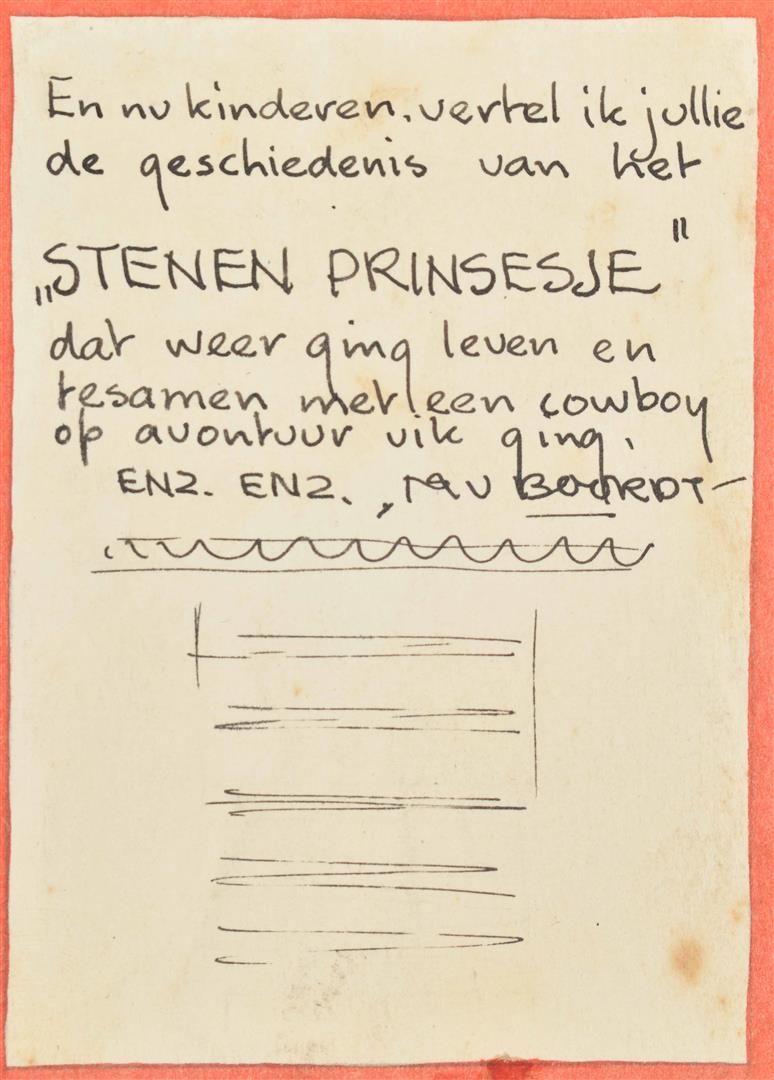 En nu kinderen, vertel ik jullie
de geschiedenis van het
„STENEN PRINSESJE”
dat weer ging leven en
tesamen met een cowboy
op avontuur uit ging.
ENZ. ENZ.